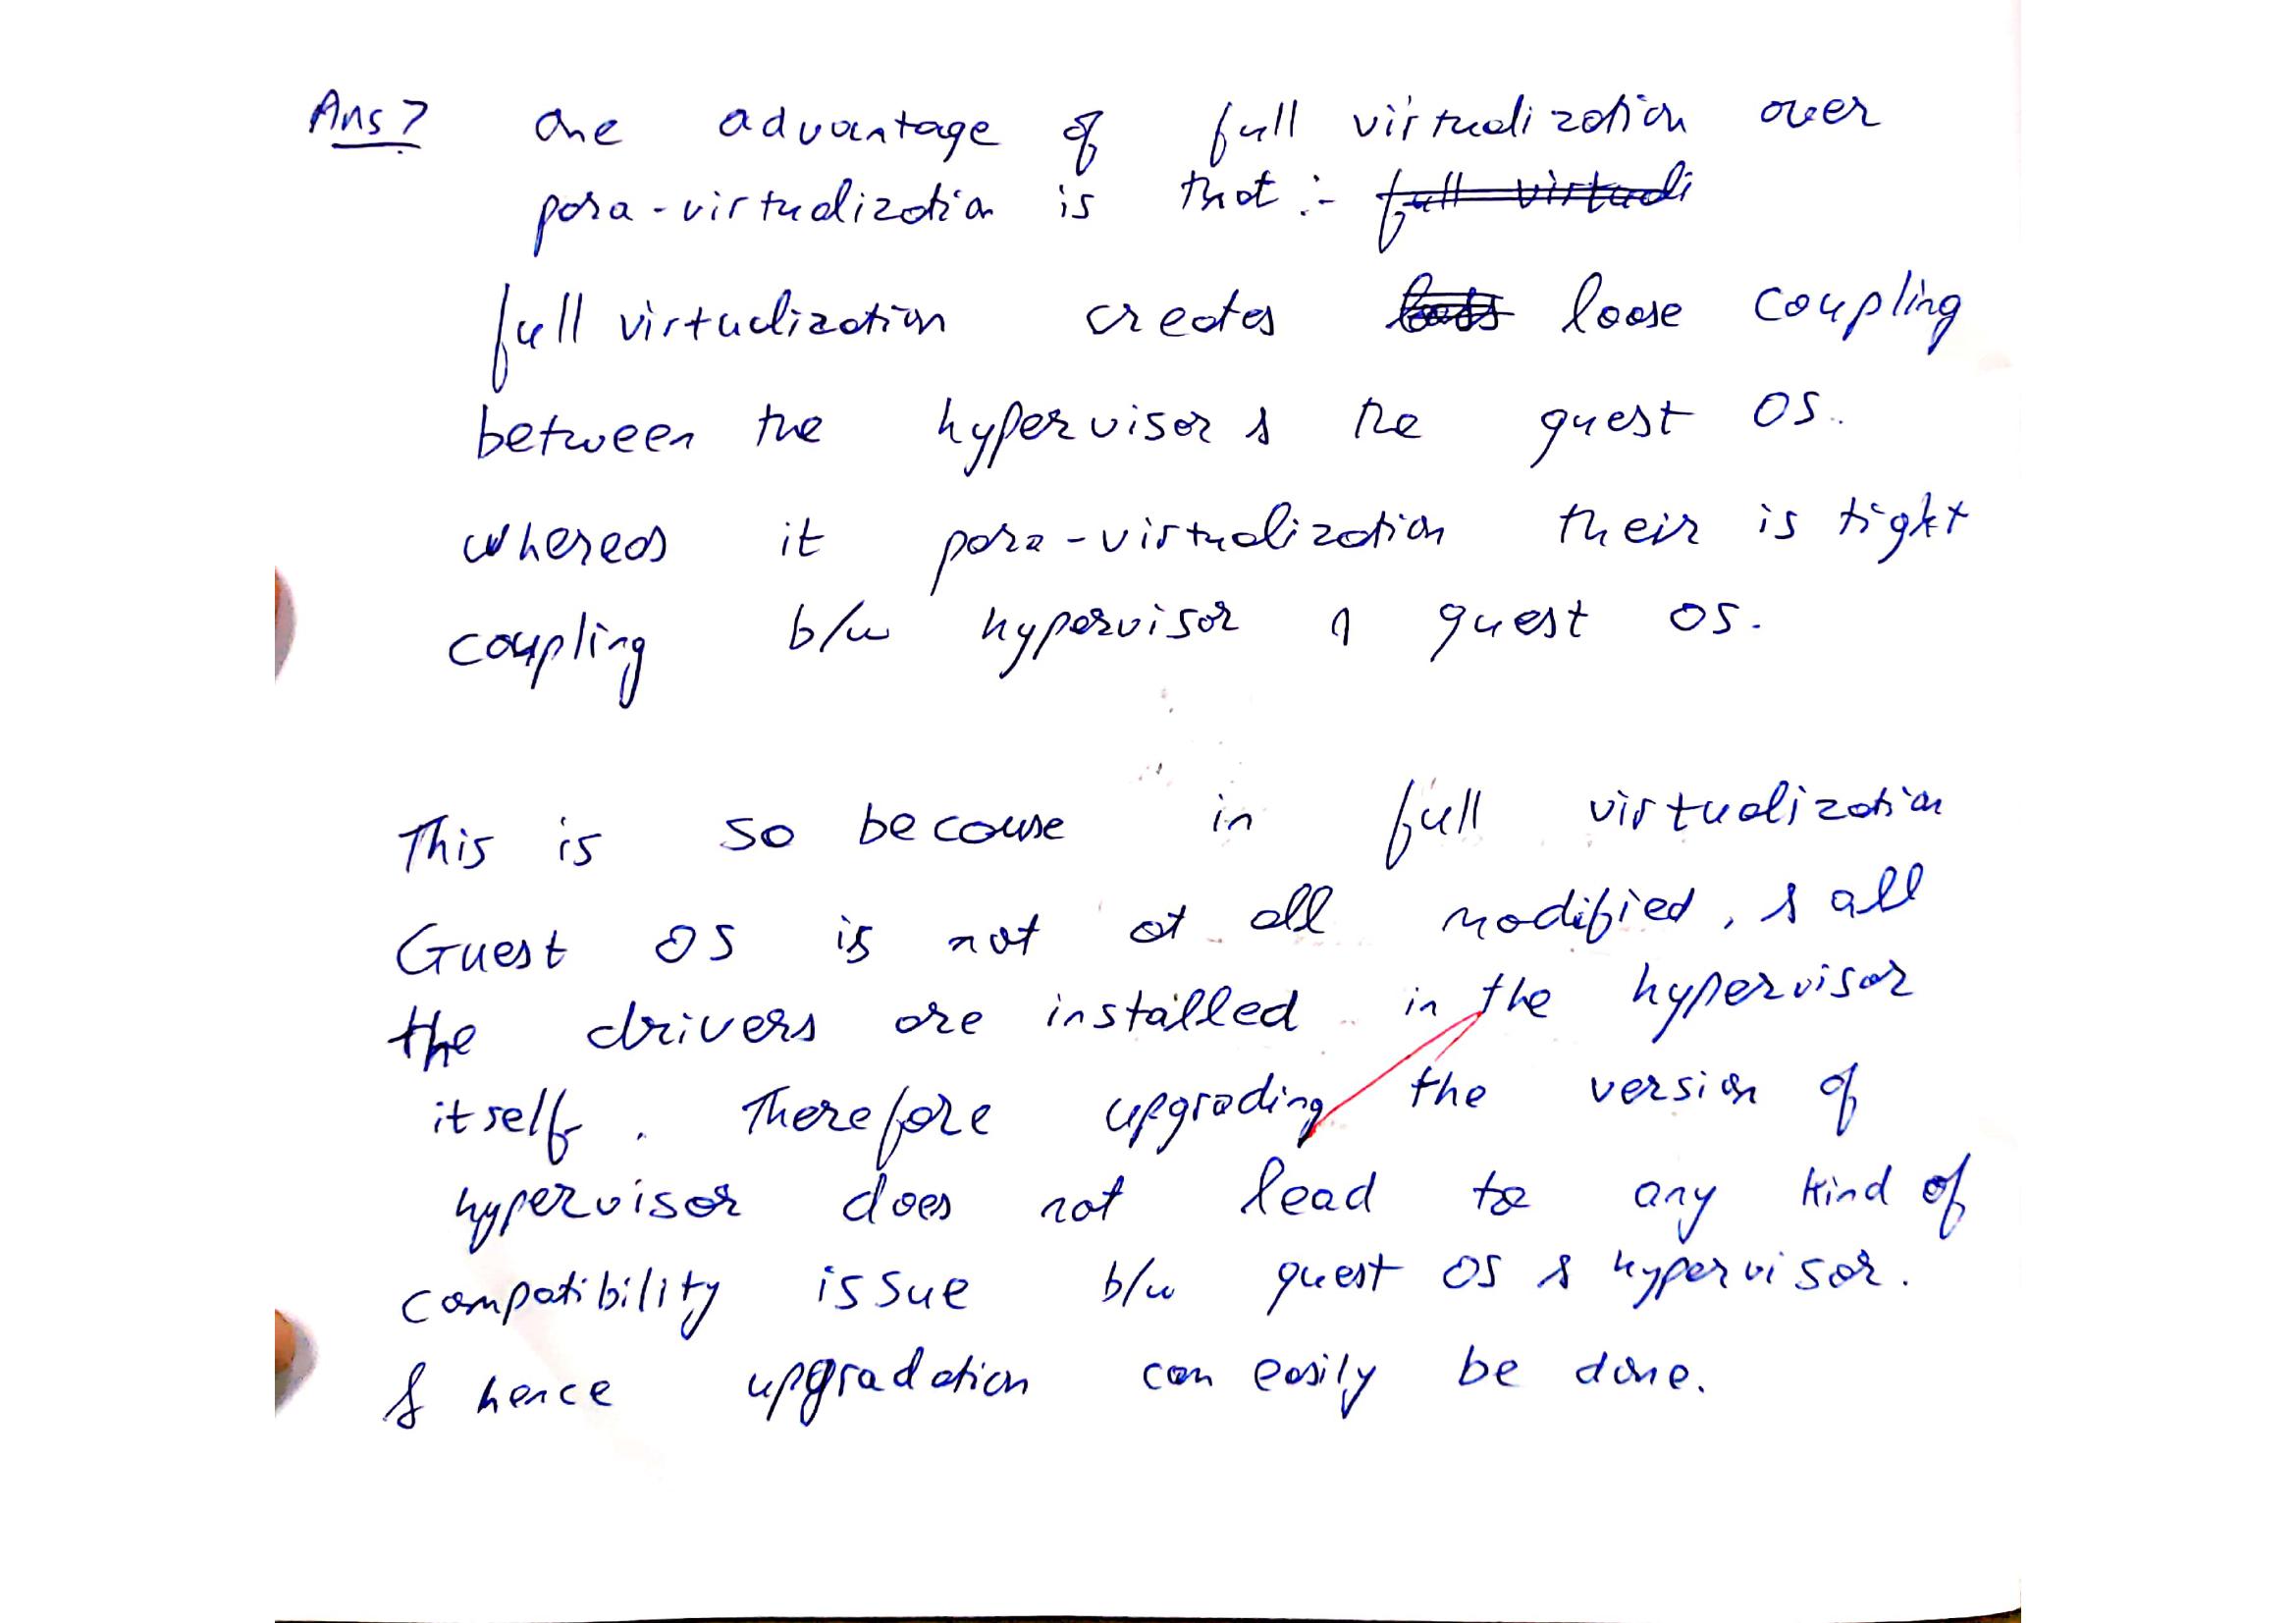 Ans 7 One advantage of full virtualization over
para-virtualization is that :- full virtuali
full virtualization creates loose coupling
between the hypervisor & the guest OS.
whereas it para-virtualization their is tight
coupling b/w hypervisor & guest OS.
This is so because in full virtualization
Guest OS is not at all modified, & all
the drivers are installed in the hypervisor
itself. Therefore upgrading the version of
hypervisor does not lead to any kind of
compatibility issue b/w guest OS & hypervisor.
& hence upgradation can easily be done.